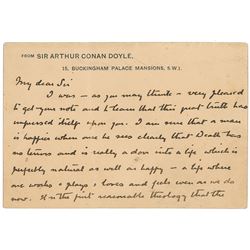 FROM SIR ARTHUR CONAN DOYLE,
15, BUCKINGHAM PALACE MANSIONS, S.W.1.
My dear Sir
I was – as you may think – very pleased
to get your note and to learn that this great truth has
impressed itself upon you. I am sure that a man
is happier when once he sees clearly that Death has
no terrors and is really a door into a life which is
perfectly natural as well as happy – a life where
one works & plays & loves and feels even as we do
now. It is the first reasonable theology that the